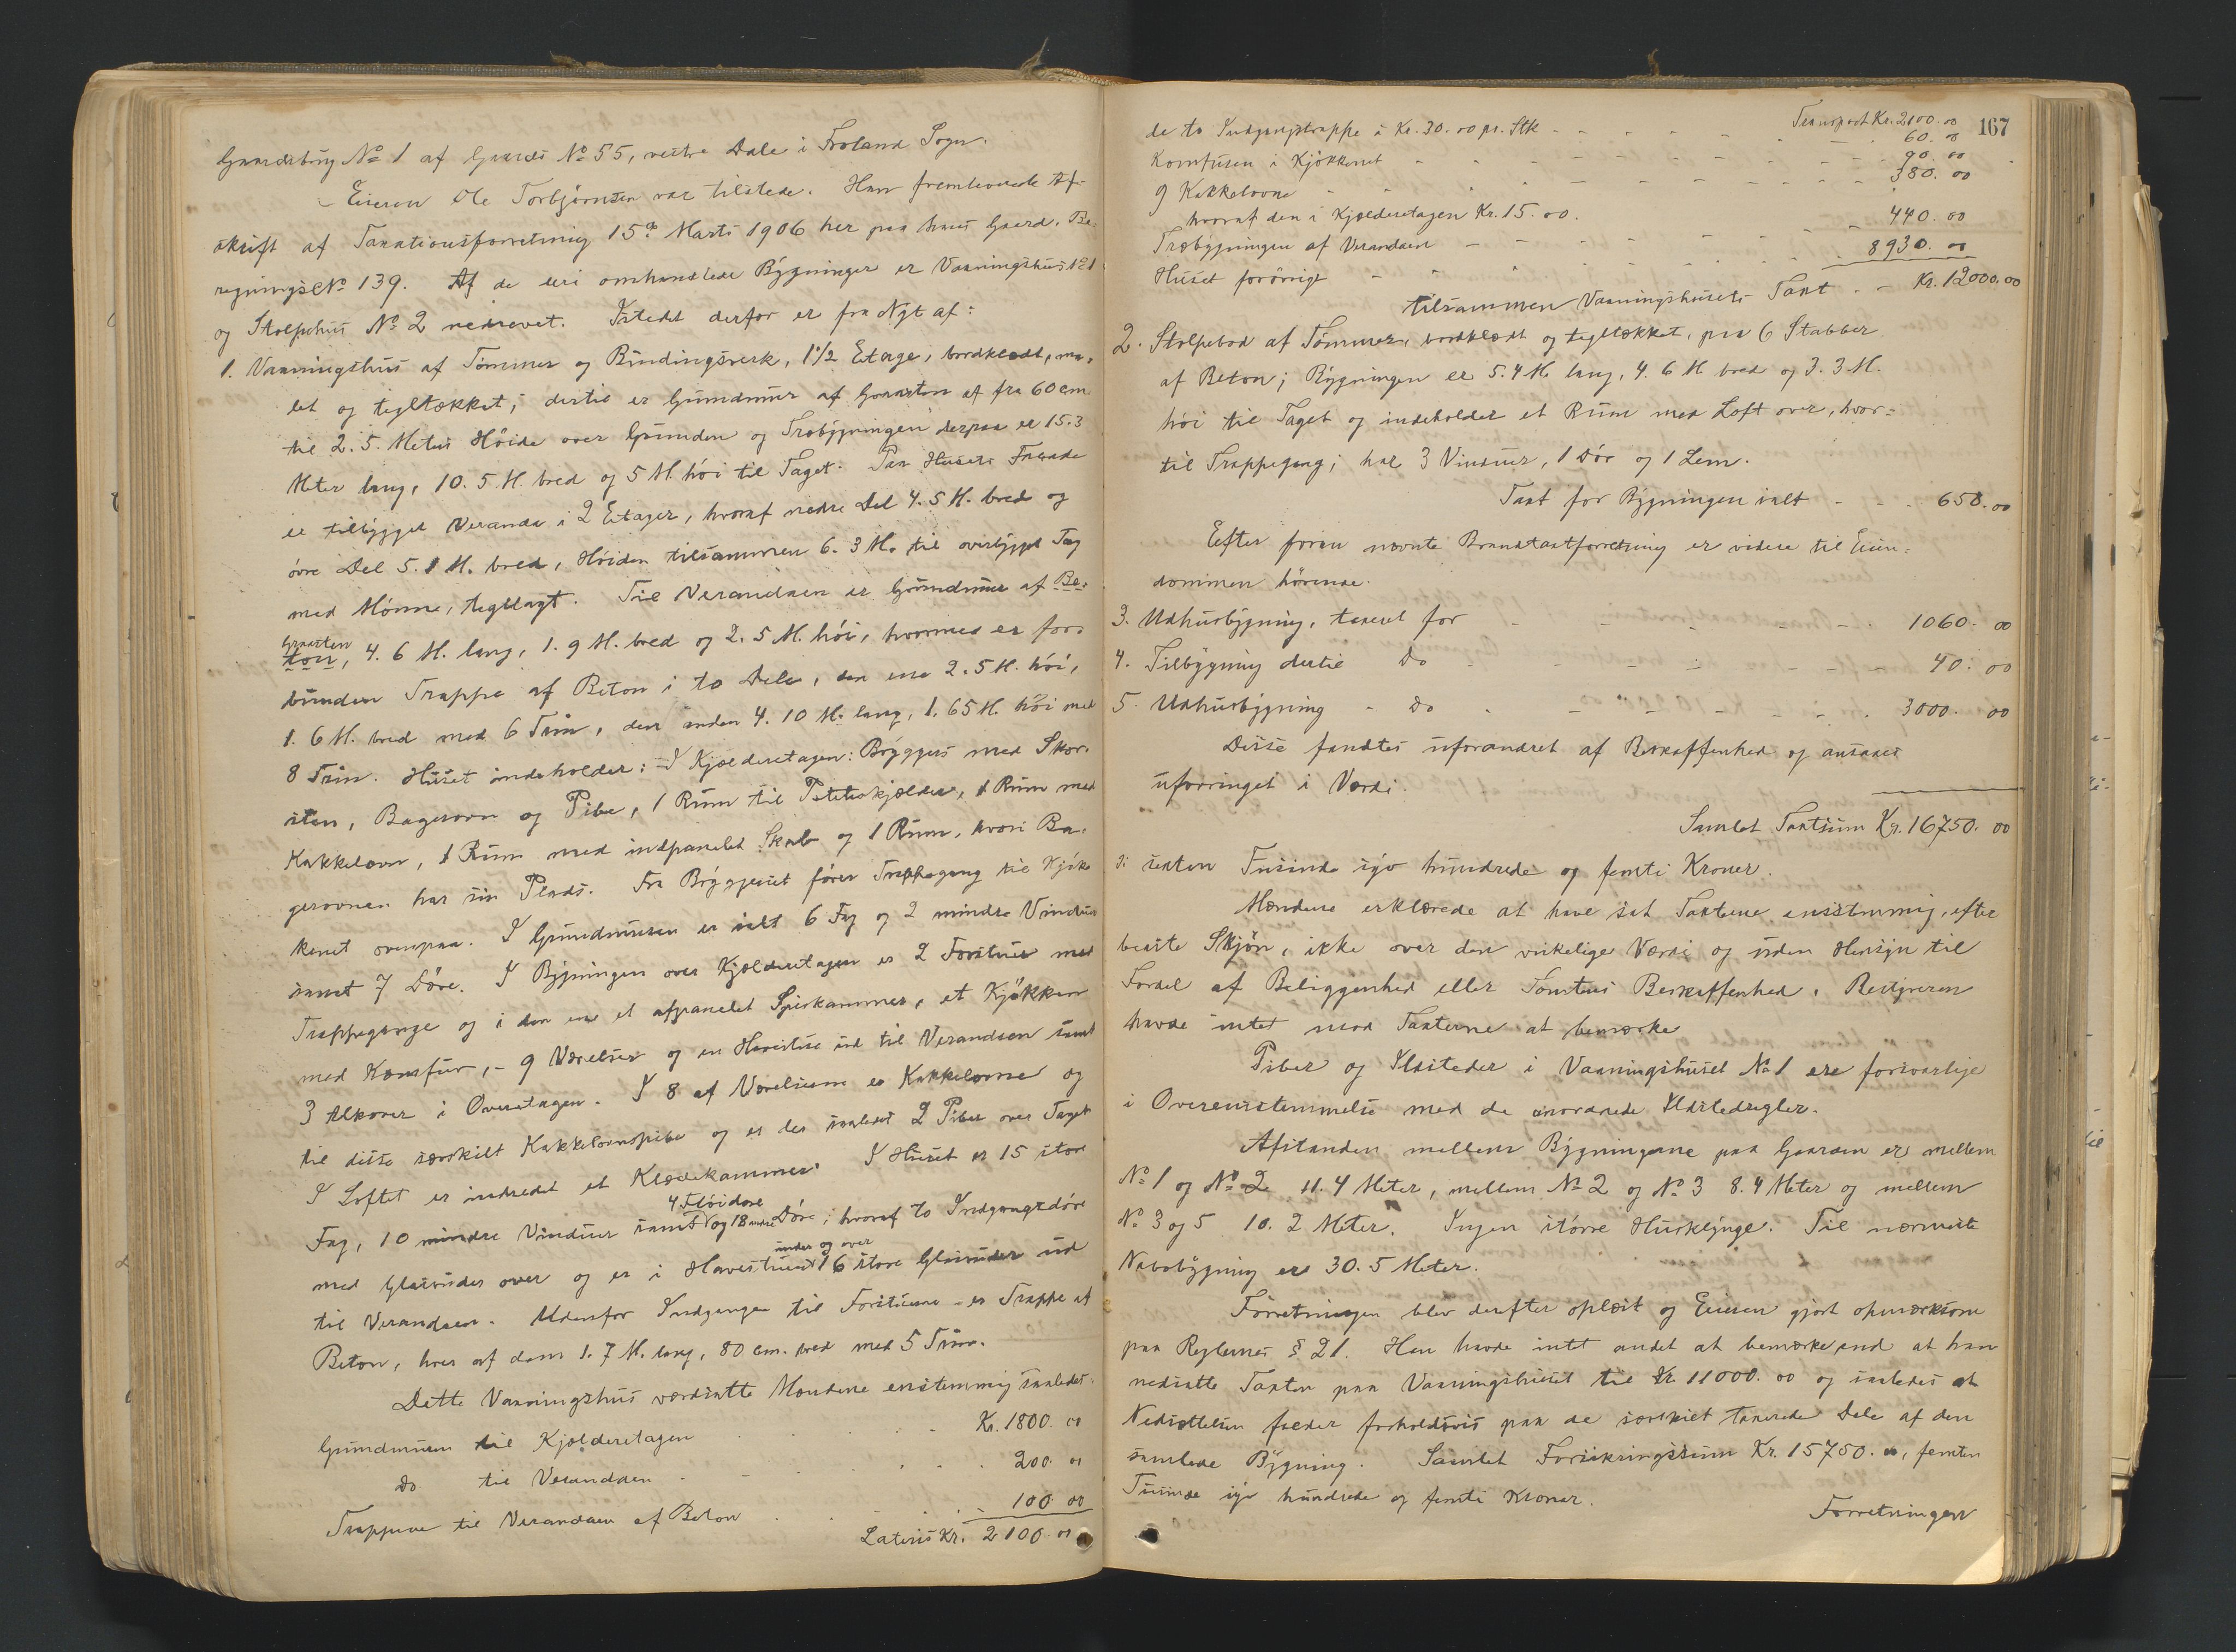 Gaardsbrug No 1 af Gaards No 55, vestre Dale i Froland Sogn.
Eieren Ole Torbjørnsen var tilstede. Han fremleverede Af-
skrift af Taxationsforretning 15de Marts 1906 her paa hans Gaard. Be-
regningsNo 139. Af de deri omhandlede Bygninger er Vaaningshus No 1
og Stolpehus No 2 nedrevet. Istedet derfor er fra Nyt af:
1. Vaaningshus af Tømmer og Bindingsverk, 1 1/2 Etage, bordklædt, ma-
let og tegltækket; dertil er Grundmur af Graasten af fra 60 cm
til 2.5 Meters Høide over Grunden og Træbygningen derpaa er 15.3
Meter lang, 10.5 M. bred og 5 M. høi til Taget. Paa Husets Facade
er tilbygget Veranda i 2 Etager, hvoraf nedre Del 4.5 M. bred og
øvre Del 5.1 M. bred, Høiden tilsammen 6.3 M. til overbygget Tag
med Mønne, tegllagt. Til Verandaen er Grundmur af Be-
Graasten
ton, 4.6 M. lang, 1.9 M. bred og 2.5 M. høi, hvormed er for-
bunden Trappe af Beton i to Dele, den ene 2.5 M. høi,
1.6 M. bred med 6 Trin, den anden 4.10 M. lang, 1.65 M. høi med
8 Trin. Huset indeholder: I Kjælderetagen: Bryggers med Skor-
sten, Bagerovn og Pibe, 1 Rum til Poteteskjælder, 1 Rum med
Kakkelovn, 1 Rum med indpanelet Skab og 1 Rum, hvori Ba-
gerovnen har sin Plads. Fra Bryggerset fører Trappegang til Kjøk-
kenet ovenpaa. I Grundmuren er ialt 6 Fag og 2 mindre Vinduer
samt 7 Døre. I Bygningen over Kjælderetagen er 2 Forstuer med
Trappegange og i den ene et afpanelet Spiskammer, et Kjøkken
med Komfur, - 9 Værelser og en Havestue ud til Verandaen samt
3 Alkover i Overetagen. I 8 af Værelserne er Kakkelovne og
til disse særskilt Kakkelovnspibe og er der saaledes 2 Piber over Taget
I Loftet er indredet et Klædekammer. I Huset er 15 store
4 Fløidøre
Fag, 10 mindre Vinduer samt og 18 andre Døre, hvoraf to Indgangsdøre
under og over
med Glasruder over og er i Havestuen 16 store Glasruder ud
til Verandaen. Udenfor Indgangen til Forstuerne er Trappe af
Beton, hver af dem 1.7 M. lang, 80 cm. bred med 5 Trin.
Dette Vaaningshus værdsatte Mændene enstemmig saaledes:
Grundmuren til Kjælderetagen Kr. 1800.00
Do til Verandaen 200.00
Trapperne til Verandaen af Beton 100.00
Lateris Kr. 2100.00
167
Transport Kr. 2100.00
de to Indgangstrappe à Kr. 30.00 pr. Stk 60.00
Komfuren i Kjøkkenet 90.00
9 Kakkelovne 380.00
hvoraf den i Kjælderetagen Kr. 15.00.
Træbygningen af Verandaen 440.00
Huset forøvrigt 8930.00
tilsammen Vaaningshusets Taxt - Kr. 12000.00
2. Stolpebod af Tømmer, bordklædt og tegltækket, paa 6 Stabber
af Beton; Bygningen er 5.4 M. lang, 4.6 M. bred og 3.3 M.
høi til Taget og indeholder et Rum med Loft over, hvor-
til Trappegang; har 3 Vinduer, 1 Dør og 1 Lem.
Taxt for Bygningen ialt - 650.00
Efter foran nævnte Brandtaxtforretning er videre til Eien-
dommen hørende.
3. Udhusbygning, taxeret for 1060.00
4. Tilbygning dertil Do 40.00
5. Udhusbygning - Do 3000.00
Disse fandtes uforandret af Beskaffenhed og ansaaes
uforringet i Værdi.
Samlet Taxtsum Kr. 16750.00
ɔ: sexten Tusinde syv hundrede og femti Kroner.
Mændene erklærede at have sat Taxterne enstemmig, efter
bedste Skjøn, ikke over den virkelige Værdi og uden Hensyn til
Fordel af Beliggenhed eller Tomtens Beskaffenhed. Bestyreren
havde intet mod Taxterne at bemærke
Piber og Ildsteder i Vaaningshuset No 1 ere forsvarlige
i Overensstemmelse med de anordnede Ildstedsregler.
Afstanden mellem Bygningerne paa Gaarden er mellem
No 1 og No 2 11.4 Meter, mellem No 2 og No 3 8.4 Meter og mellem
No 3 og 5 10.2 Meter. Ingen større Husklynge. Til nærmeste
Nabobygning er 30.5 Meter.
Forretningen blev derefter oplæst og Eieren gjort opmærksom
paa Reglernes § 21. Han havde intet andet at bemærke end at han
nedsatte Taxten paa Vaaningshuset til Kr. 11000.00 og saaledes at
Nedsættelsen falder forholdsvis paa de særskilt taxerede Dele af den
samlede Bygning. Samlet Forsikringssum Kr. 15750.00, femten
Tusinde syv hundrede og femti Kroner.
Forretningen